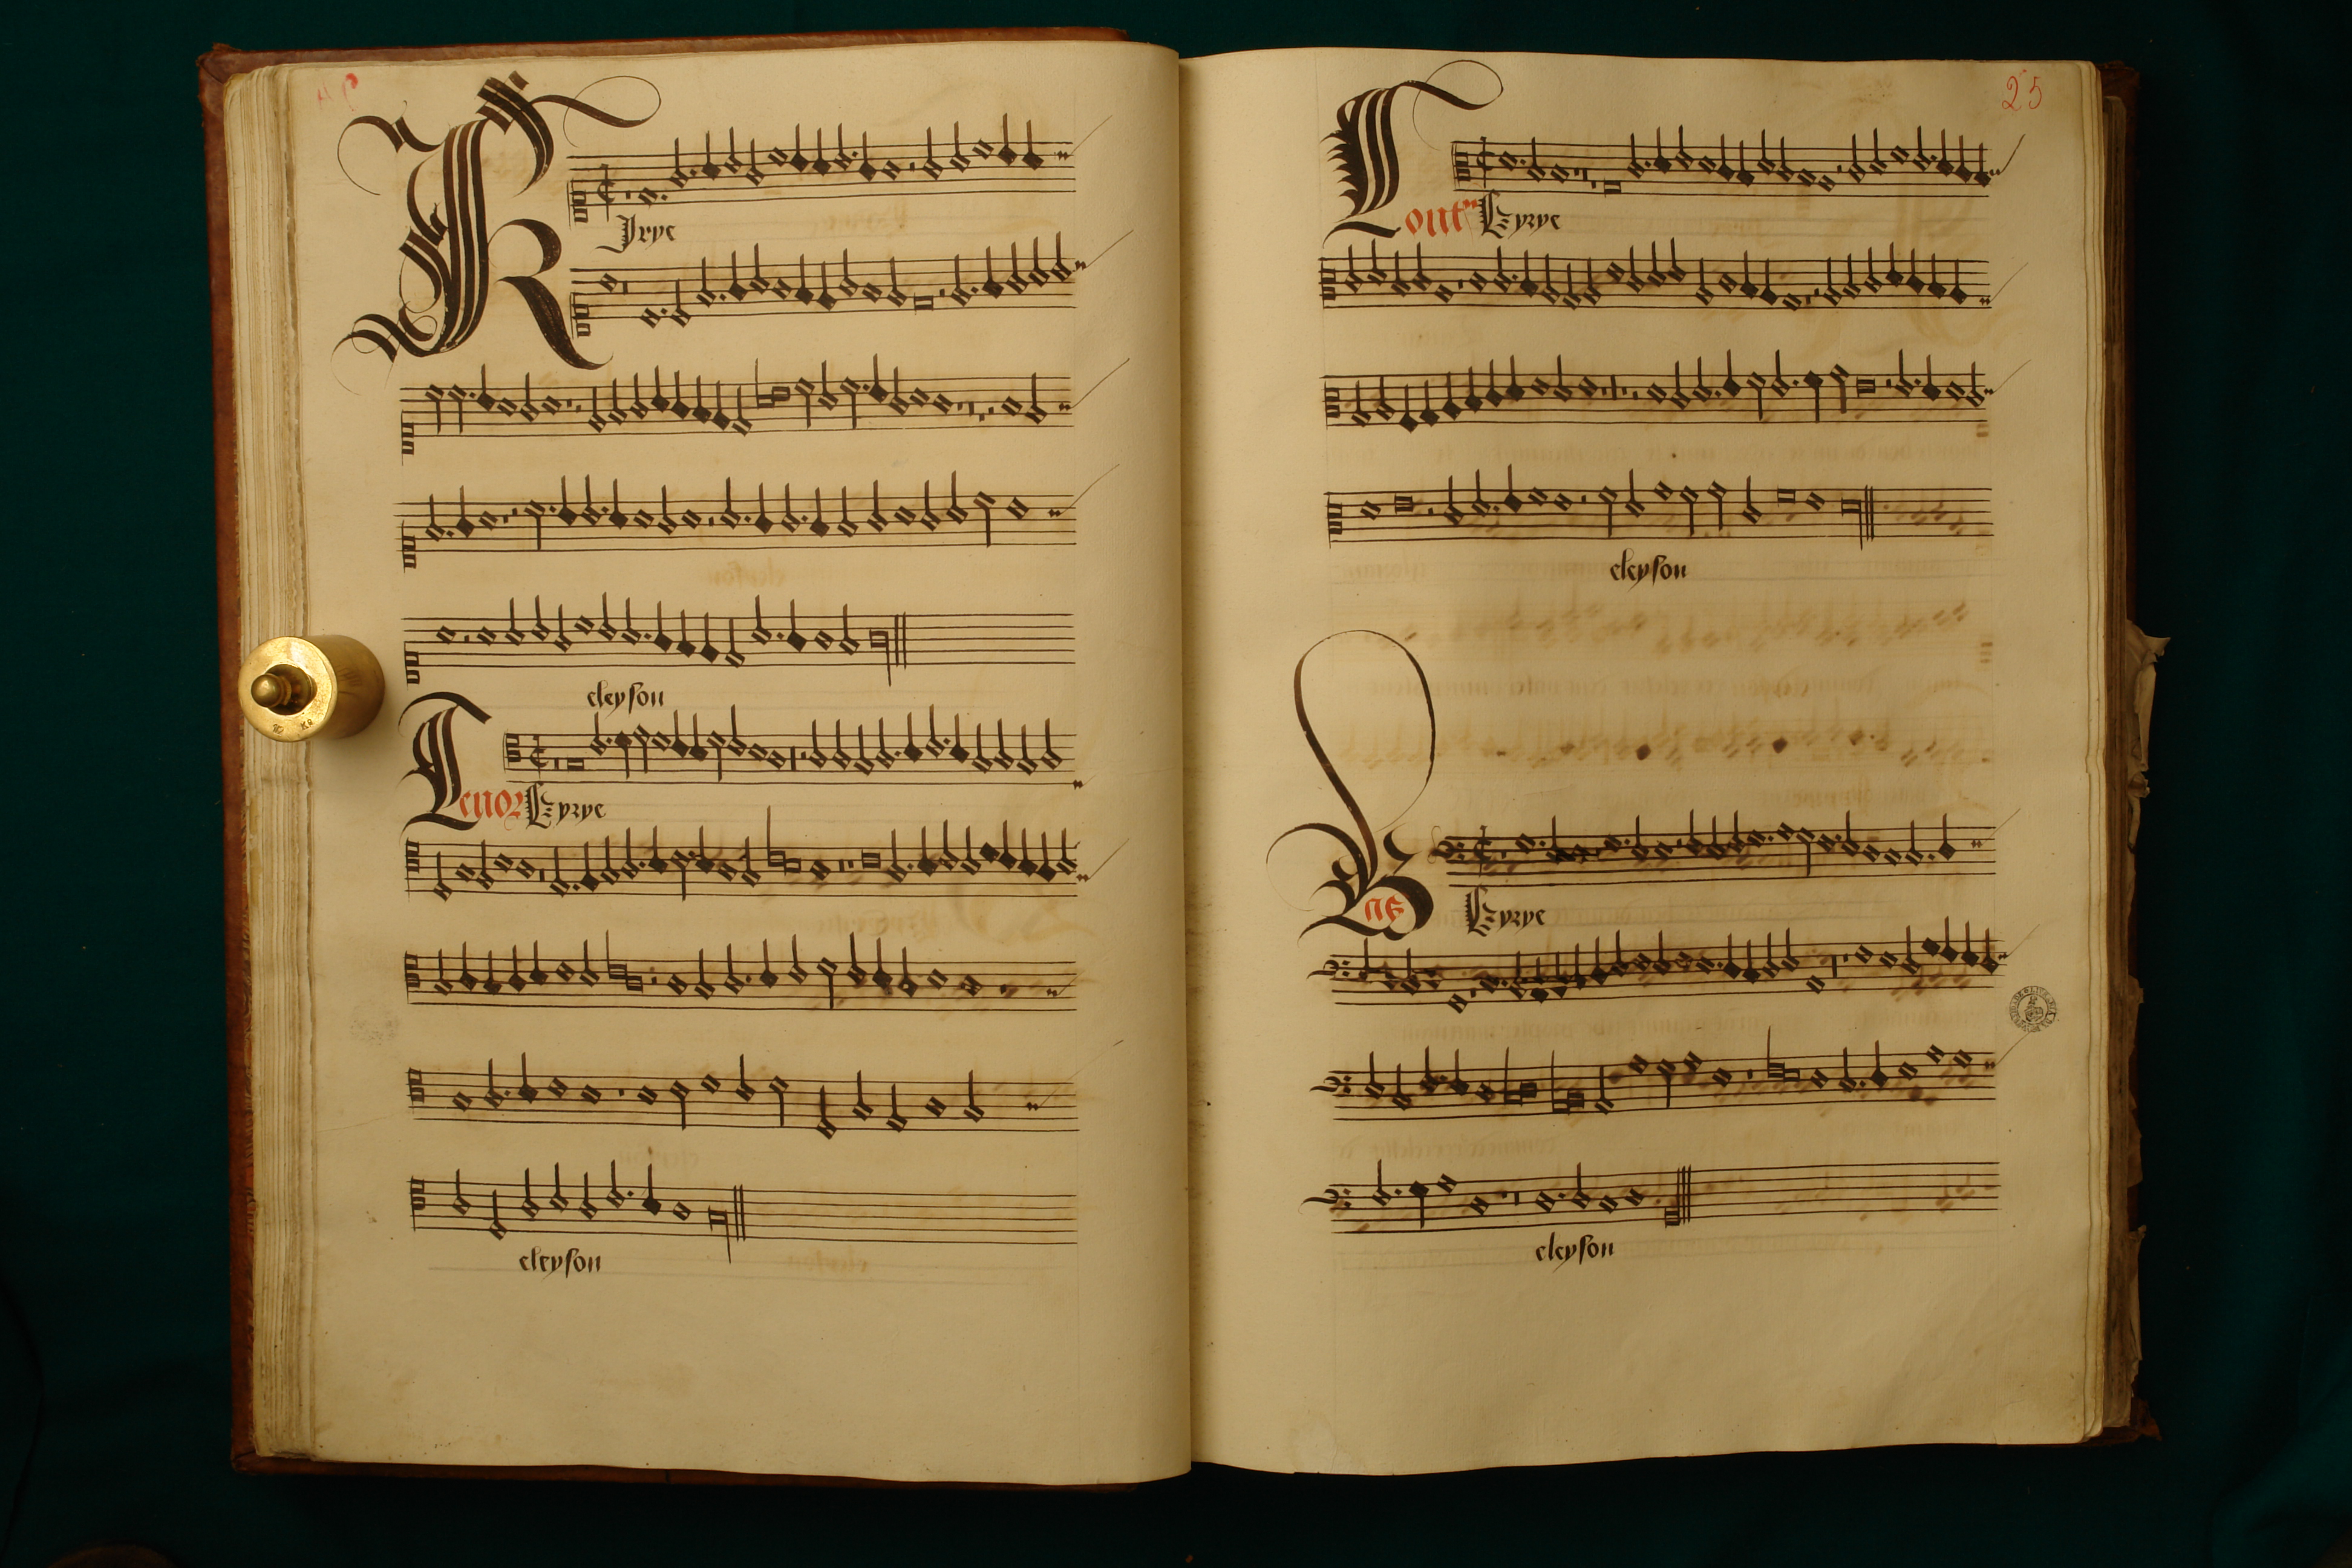 Kyrye
eleyson
Tenor Kyrye
eleyson
25
Contra Kyrye
eleyson
Bas Kyrye
eleyson